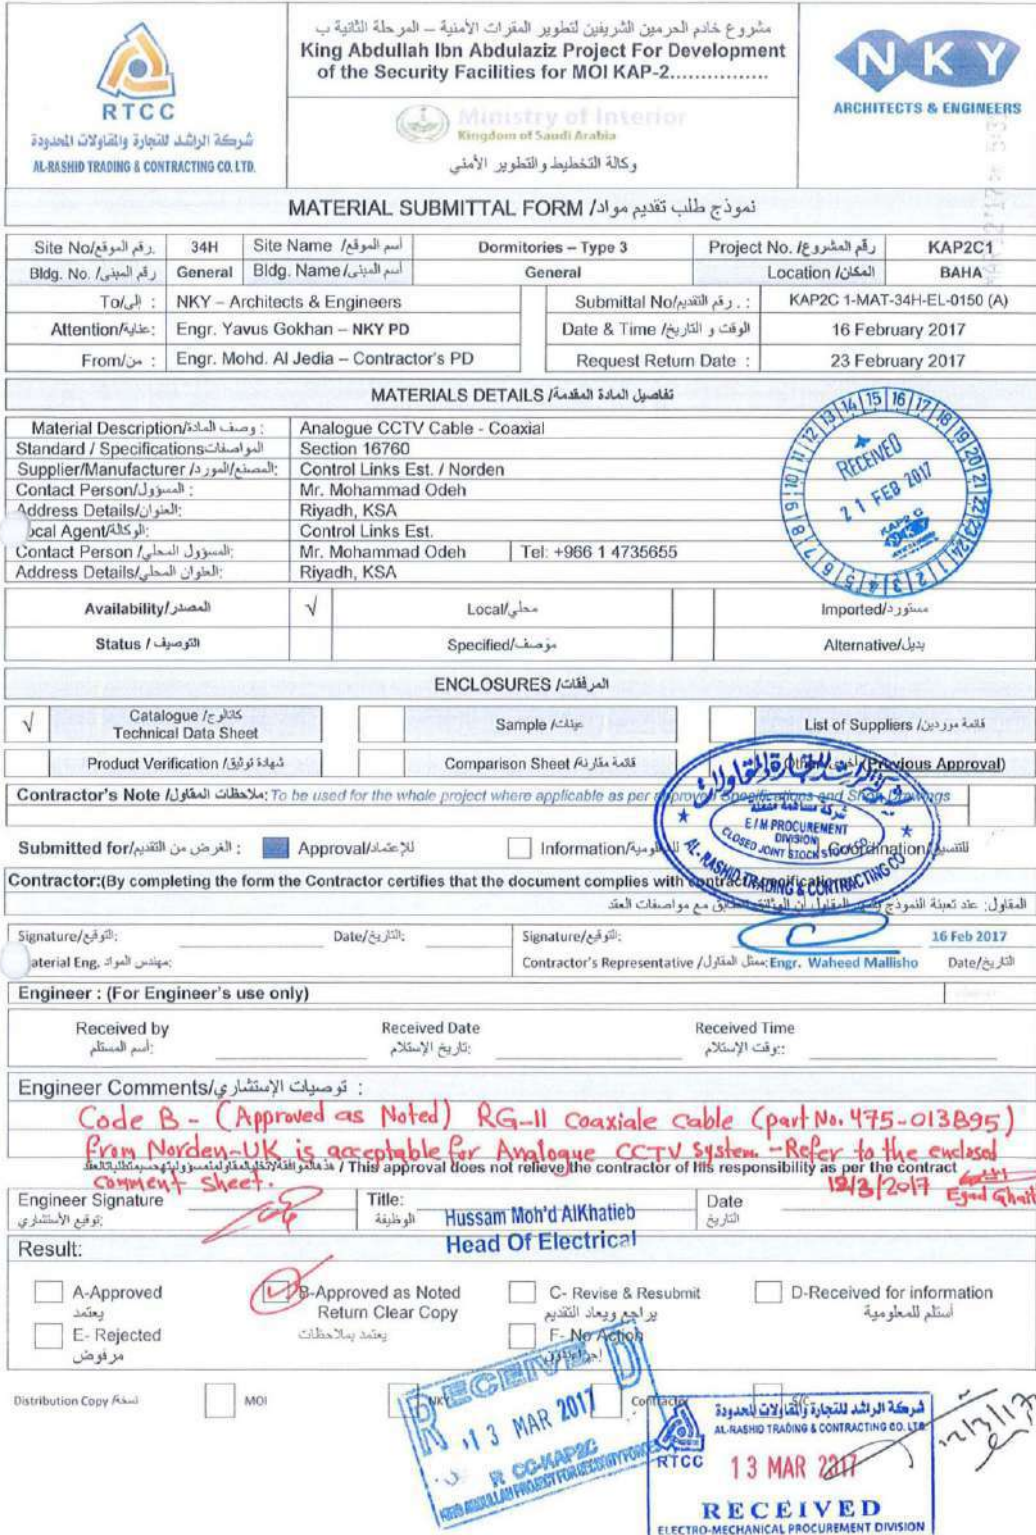 RTCC
شركة الراشد للتجارة والمقاولات المحدودة
AL-RASHID TRADING & CONTRACTING CO. LTD.
مشروع خادم الحرمين الشريفين لتطوير المقرات الأمنية – المرحلة الثانية ب
King Abdullah Ibn Abdulaziz Project For Development
of the Security Facilities for MOI KAP-2................
Ministry of Interior
Kingdom of Saudi Arabia
وكالة التخطيط والتطوير الأمني
NKY
ARCHITECTS & ENGINEERS
MATERIAL SUBMITTAL FORM /نموذج طلب تقديم مواد
Site No/رقم الموقع. 34H Site Name /أسم الموقع Dormitories – Type 3 Project No. /رقم المشروع KAP2C1
Bldg. No. /رقم المبنى General Bldg. Name/أسم المبنى General Location /المكان BAHA
To/إلى : NKY – Architects & Engineers Submittal No/رقم التقديم. : KAP2C 1-MAT-34H-EL-0150 (A)
Attention/عناية: Engr. Yavus Gokhan – NKY PD Date & Time /الوقت و التاريخ 16 February 2017
From/من : Engr. Mohd. Al Jedia – Contractor's PD Request Return Date : 23 February 2017
MATERIALS DETAILS /تفاصيل المادة المقدمة
Material Description/وصف المادة : Analogue CCTV Cable - Coaxial
Standard / Specifications المواصفات Section 16760
Supplier/Manufacturer /المصنع/المورد: Control Links Est. / Norden
Contact Person/المسؤول : Mr. Mohammad Odeh
Address Details/العنوان: Riyadh, KSA
ocal Agent/الوكالة: Control Links Est.
Contact Person /المسؤول المحلي: Mr. Mohammad Odeh Tel: +966 1 4735655
Address Details/العلوان المحلي: Riyadh, KSA
RECEIVED
21 FEB 2017
KAP2 C
Availability/المصدر √ Local/محلي Imported/مستورد
Status / التوصيف Specified/مؤصف Alternative/بديل
ENCLOSURES /المرفقات
√ Catalogue /كتالوج
Technical Data Sheet
Sample /عينات List of Suppliers /قائمة موردين
Product Verification /شهادة توثيق Comparison Sheet /قائمة مقارنة Other/أخرى (Previous Approval)
Contractor's Note /ملاحظات المقاول: To be used for the whole project where applicable as per approved Specifications and Shop Drawings
شركة مساهمة مقفلة
E / M PROCUREMENT
DIVISION
CLOSED JOINT STOCK
AL-RASHID TRADING & CONTRACTING CO
Submitted for/الغرض من التقديم : Approval/للإعتماد Information/للمعلومية Coordination/للتنسيق
Contractor:(By completing the form the Contractor certifies that the document complies with contract specifications
المقاول: عند تعبئة النموذج يشهد المقاول أن الوثائق تتطابق مع مواصفات العقد
Signature/التوقيع: Date/التاريخ: Signature/التوقيع: 16 Feb 2017
aterial Eng. مهندس المواد: Contractor's Representative /ممثل المقاول: Engr. Waheed Mallisho Date/التاريخ
Engineer : (For Engineer's use only)
Received by Received Date Received Time
أسم المستلم: تاريخ الإستلام: وقت الإستلام::
Engineer Comments/توصيات الإستشاري :
Code B - (Approved as Noted) RG-11 Coaxiale cable (part No. 475-013B95)
from Norden-UK is acceptable for Analogue CCTV System. - Refer to the enclosed
This approval does not relieve the contractor of his responsibility as per the contract
comment sheet. 12/3/2017 Eyad Ghait
Engineer Signature Title: Hussam Moh'd AlKhatieb Date
توقيع الأستشاري: الوظيفة Head Of Electrical التاريخ
Result:
A-Approved B-Approved as Noted C- Revise & Resubmit D-Received for information
يعتمد Return Clear Copy يراجع ويعاد التقديم أستلم للمعلومية
E- Rejected يعتمد بملاحظات F- No Action
مرفوض
Distribution Copy /نسخة MOI NKY Contractor S/C
RECEIVED
13 MAR 2017
R CC-KAP2C
KING ABDULLAH PROJECT FOR SECURITY FORCES
RTCC
شركة الراشد للتجارة والمقاولات المحدودة
AL-RASHID TRADING & CONTRACTING CO. LTD
13 MAR 2017
RECEIVED
ELECTRO-MECHANICAL PROCUREMENT DIVISION
12/3/17